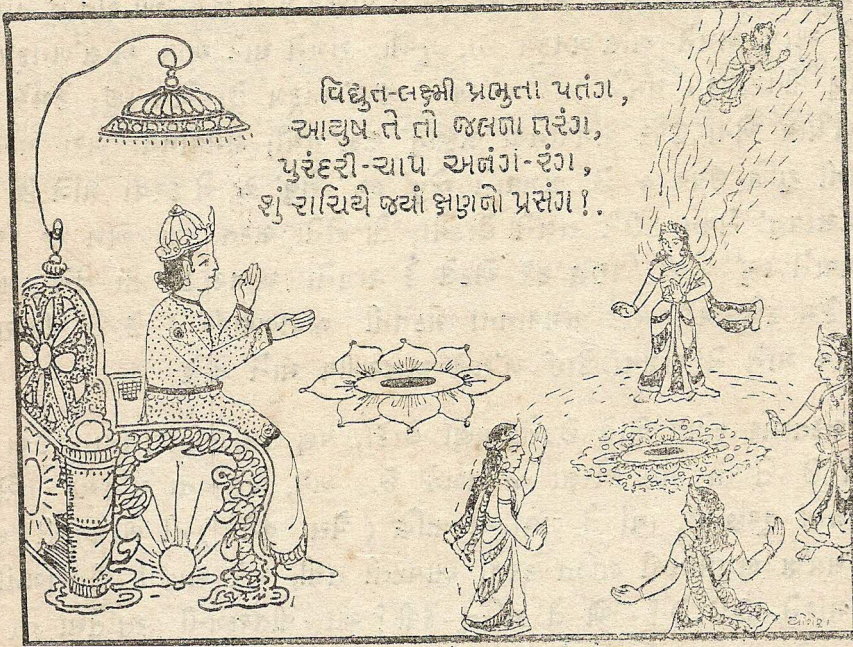 વિદ્યુત-લક્ષ્મી પ્રભુતા પતંગ,
આયુષ તે તો જલના તરંગ,
પુરંદરી-ચાપ અનંગ-રંગ,
શું રાચિયે જ્યાં ક્ષણનો પ્રસંગ!.